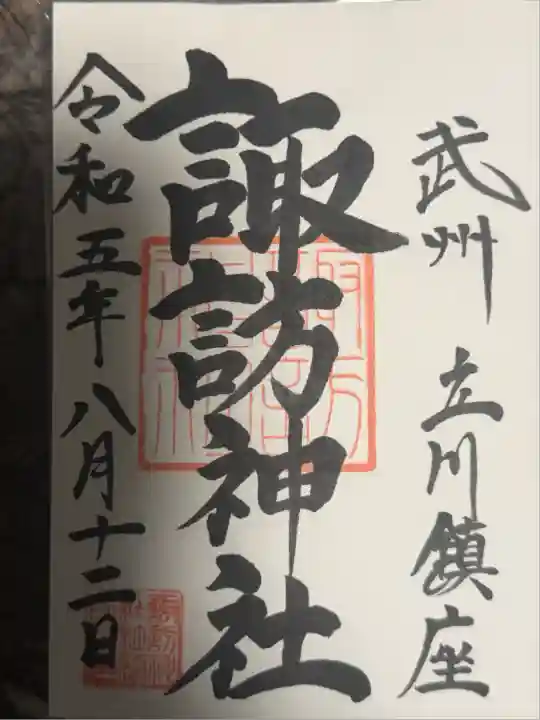 武州 立川鎮座
諏訪神社
令和五年八月十二日